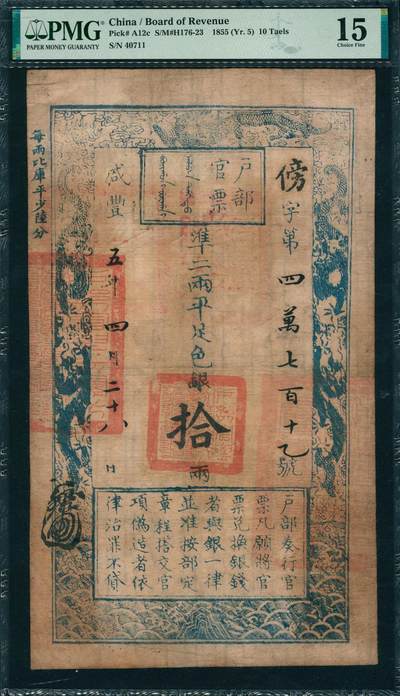 PMG
PAPER MONEY GUARANTY
China / Board of Revenue
Pick# A12c S/M#H176-23 1855 (Yr. 5) 10 Taels
S/N 40711
15
Choice Fine
每兩比庫平少陸分
戶部
官票
傍字第四萬七百十
號
準二兩平足色銀
拾
兩
咸豐五年四月二十八日
戶部奏行官
票凡願將官
票兌換銀錢
者與銀一律
並准按部定
章程搭交官
項偽造者依
律治罪不貸